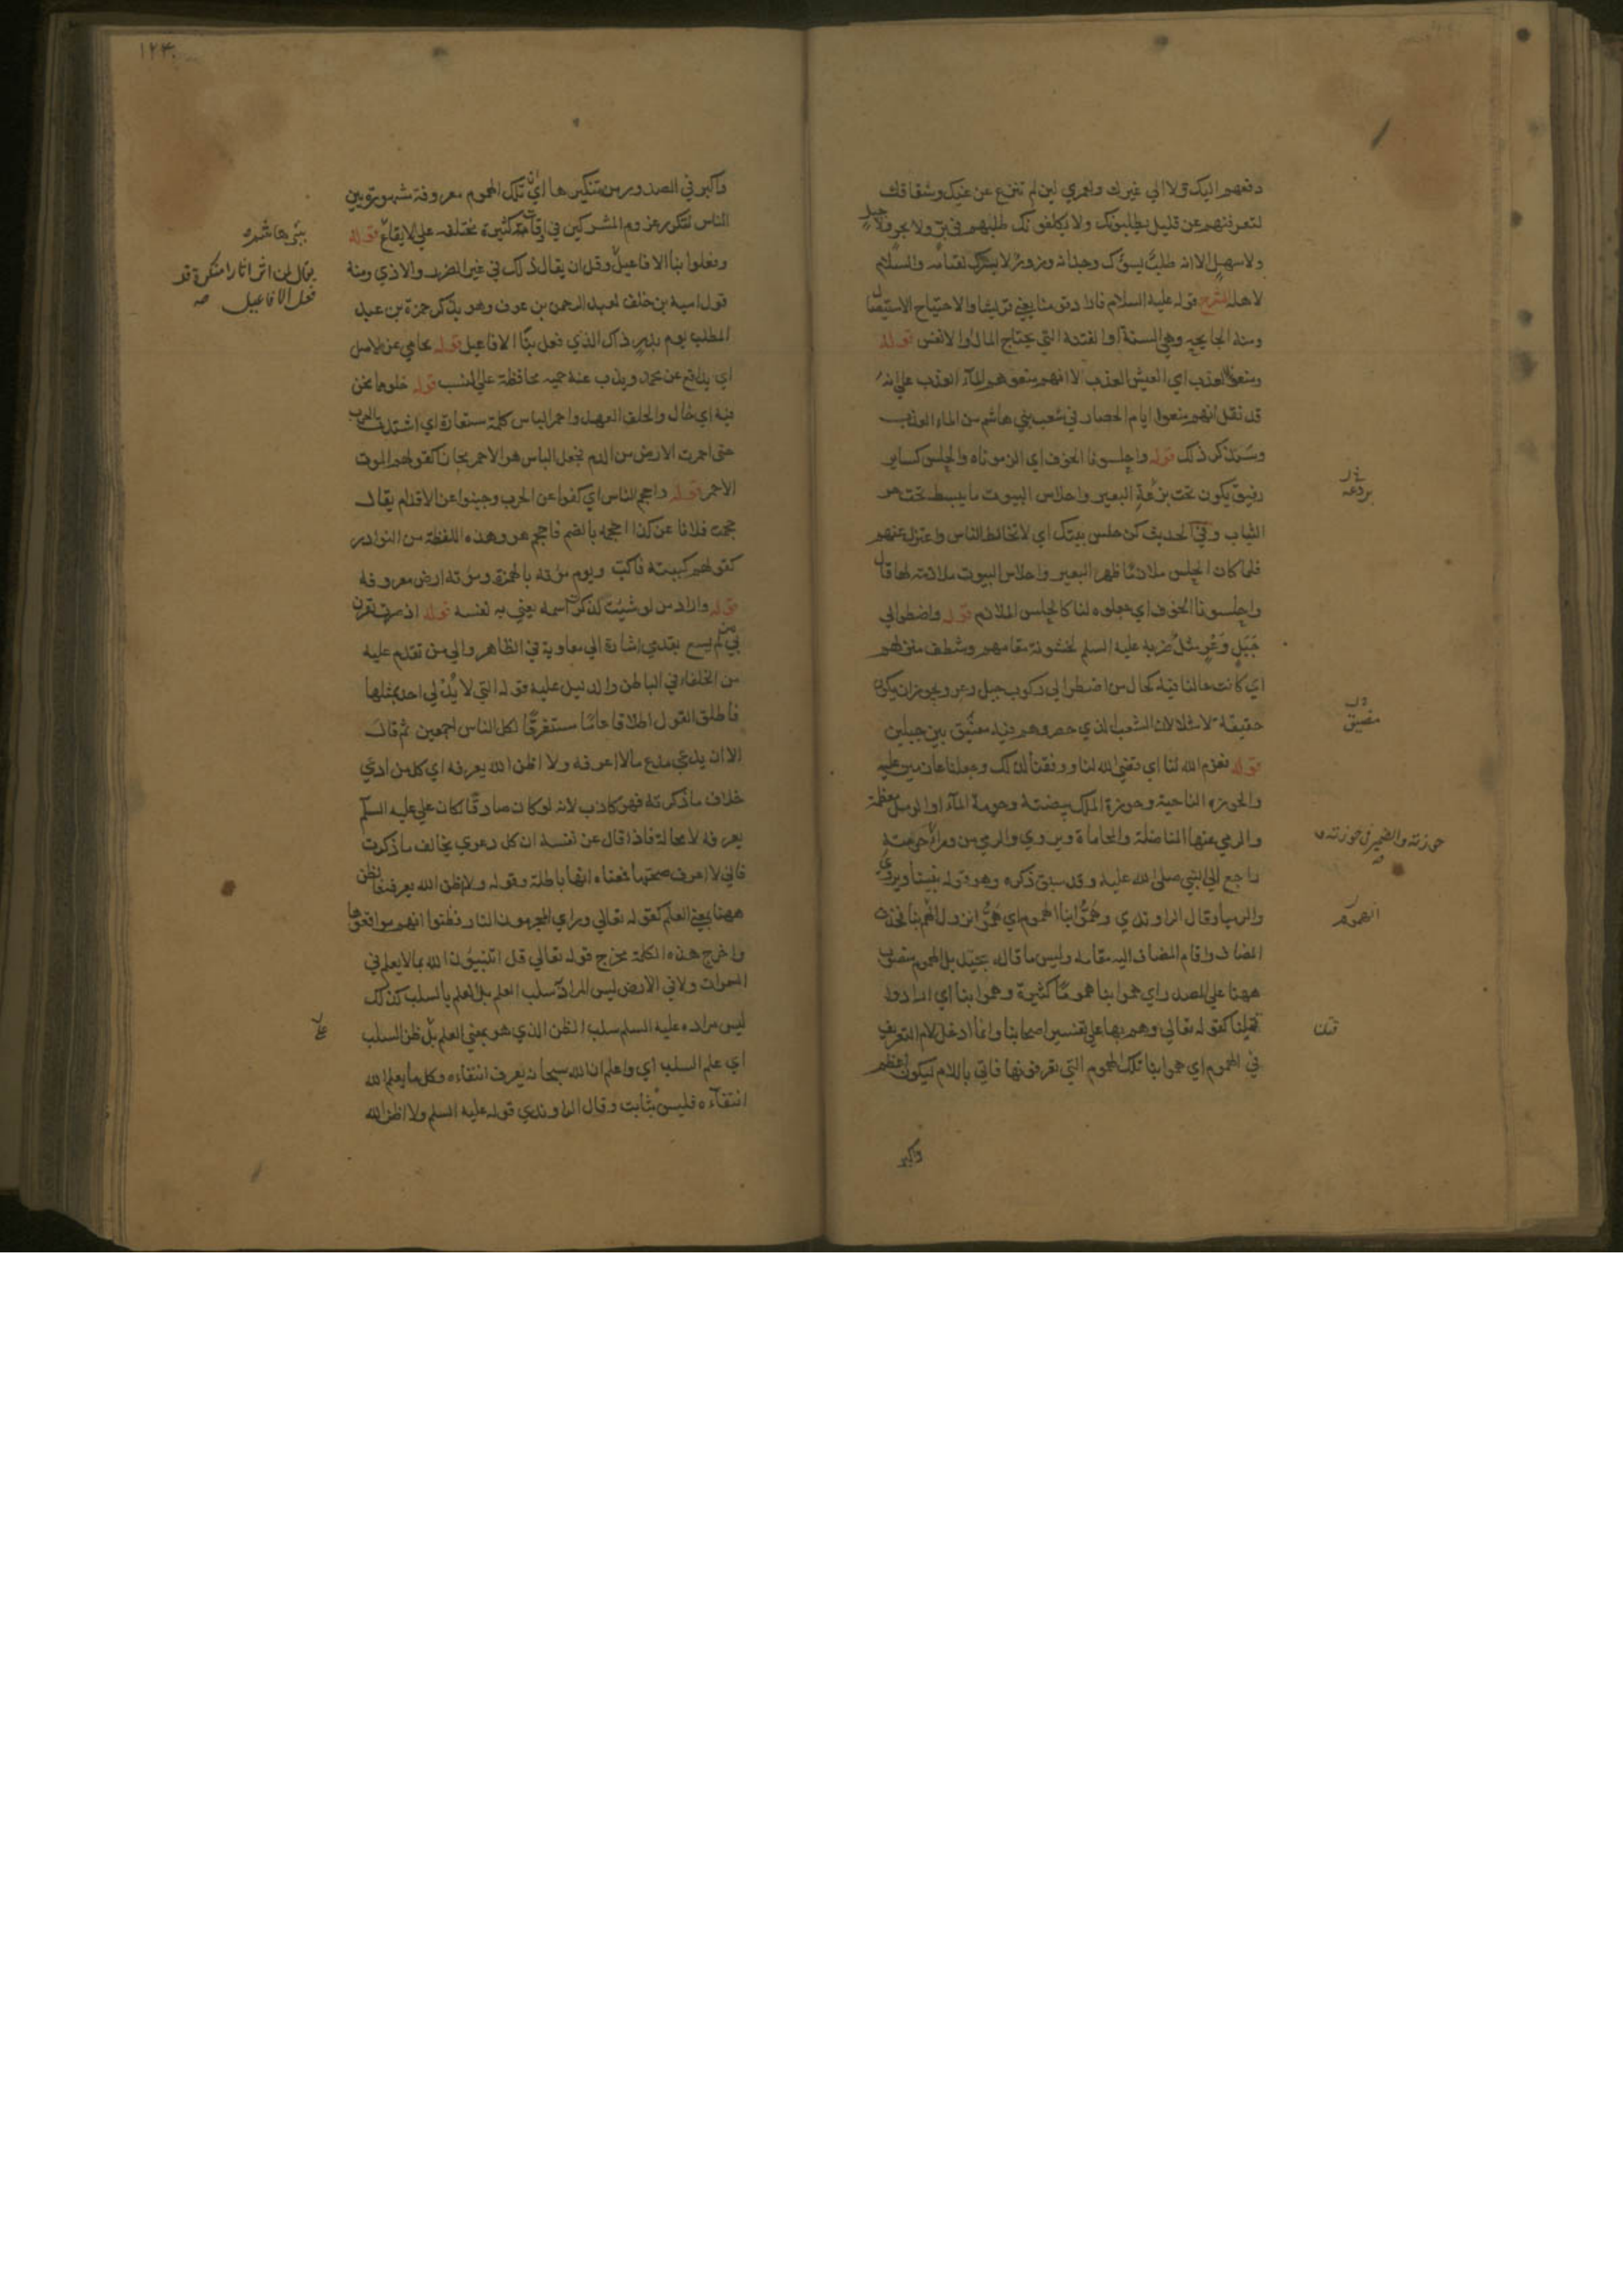 دفعهم اليك ولا الي غيرك ولعمري لين لم تنزع عن غيك وشقاقك
لتعرفنهم عن قليل يطلبونك ولا يكلفونك طلبهم في بر ولا بحر ولا جبل
ولا سهل الا انه طلب يسوءك وجدانه وزور لا يسرك لقيانه والسلام
لاهله الشرح قوله عليه السلام فاراد قومنا يعني قريشا والاجتياح الاستيصال
ومنه الجايحه وهي السنة او الفتنة التي تجتاح المال او الانفس قوله
ومنعونا العذب اي العيش العذب لا انهم منعوهم الماء العذب علي انه
قد نقل انهم منعوا ايام الحصار في شعب بني هاشم من الماء العذب
وسنذكر ذلك قوله واحلسونا الخوف اي الزموناه والحلس كساء
رقيق يكون تحت برذعة البعير واحلاس البيوت ما يبسط تحت حر
الثياب وفي الحديث كن حلس بيتك اي لا تخالط الناس واعتزل عنهم
فلما كان الحلس ملازما ظهر البعير واحلاس البيوت ملازمة لها قال
واحلسونا الخوف اي جعلوه لنا كالحلس الملازم قوله واضطرونا الي
جبل وعر مثل ضربه عليه السلم لخشونة مقامهم وشظف منزلهم
اي كانت حالنا فيه كحال من اضطر الي ركوب جبل وعر ويجوز ان يكون
حقيقة لا مثلا لان الشعب الذي حصروهم فيه مضيق بين جبلين
قوله فعزم الله لنا اي قضي الله لنا ووفقنا لذلك وجعلنا عازمين عليه
والحوزه الناحية وحوزة الملك بيضته وحومة الماء او الرمل معظمه
والرمي عنها المناضلة والمحاماة ويروي والرمي من وراء حومته
راجع الي النبي صلي الله عليه وقد سبق ذكره وهو قوله نبينا ويروي
والرميا وقال الراوندي وهموا بنا الهموم اي هموا نزول الهم بنا فحذف
المضاف واقام المضاف اليه مقامه وليس ما قاله بجيد بل الهموم منصوب
ههنا علي المصدر اي هموا بنا هموما كثيرة وهموا بنا اي ارادوا
قتلنا كقوله تعالي وهم بها علي تفسير اصحابنا وانما ادخل لام التعريف
في الهموم اي هموا بنا تلك الهموم التي تعرفونها فاتي باللام ليكون اعظم
واكبر
بردعه
مضيق
حوزته والضمير في حوزته و
الهموم
قتلنا
١٢٤
واكبر في الصدور من تنكيرها اي ان تلك الهموم معروفة مشهورة بين
الناس لتكرر عزم المشركين في اوقات كثيرة مختلفه علي الايقاع قوله
وفعلوا بنا الافاعيل وقل ان يقال ذلك في غير الضرر والاذي ومنه
قول امية بن خلف لعبد الرحمن بن عوف وهو يذكر حمزة بن عبد
المطلب يوم بدر ذاك الذي فعل بنا الافاعيل قوله يحامي عن الاصل
اي يدافع عن محمد ويذب عنه حميه محافظة علي النسب قوله خلو مما نحن
فيه اي خال والحلف العهد واحمر الباس كلمة مستعارة اي اشتدت الحرب
حتي احمرت الارض من الدم فجعل الباس هو الاحمر مجازا كقولهم الموت
الاحمر قوله واحجم الناس اي كفوا عن الحرب وجبنوا عن الاقدام يقال
حجمت فلانا عن كذا احجمه بالضم فاحجم هو وهذه اللفظة من النوادر
كقولهم كببته فاكب ويوم مؤته بالهمزة ومؤته ارض معروفة
قوله واراد من لو شئت لذكرت اسمه يعني به نفسه قوله اذ صرت يقرن
بي من لم يسع بقدمي اشارة الي معاوية في الظاهر والي من تقدم عليه
من الخلفاء في الباطن والدليل عليه قوله التي لا يدلي احد بمثلها
فاطلق القول اطلاقا عاما مستغرقا لكل الناس اجمعين ثم قال
الا ان يدعي مدع ما لا اعرفه ولا اظن الله يعرفه اي كل من ادعي
خلاف ما ذكرته فهو كاذب لانه لو كان صادقا لكان علي عليه السلم
يعرفه لا محالة فاذا قال عن نفسه ان كل دعوي يخالف ما ذكرت
فاني لا اعرف صحتها فمعناه انها باطلة وقوله ولا اظن الله يعرفه فالظن
ههنا بمعني العلم كقوله تعالي وراي المجرمون النار فظنوا انهم مواقعوها
واخرج هذه الكلمة مخرج قوله تعالي قل اتنبئون الله بما لا يعلم في
السموات ولا في الارض ليس المراد سلب العلم بل العلم بالسلب كذلك
ليس مراده عليه السلم سلب الظن الذي هو بمعني العلم بل ظن السلب
اي علم السلب اي واعلم ان الله سبحانه يعرف انتفاءه وكل ما يعلم الله
انتفاءه فليس بثابت وقال الراوندي قوله عليه السلم ولا اظن الله
يقال لمن اثر اثارا منكرة قد
فعل الافاعيل صه